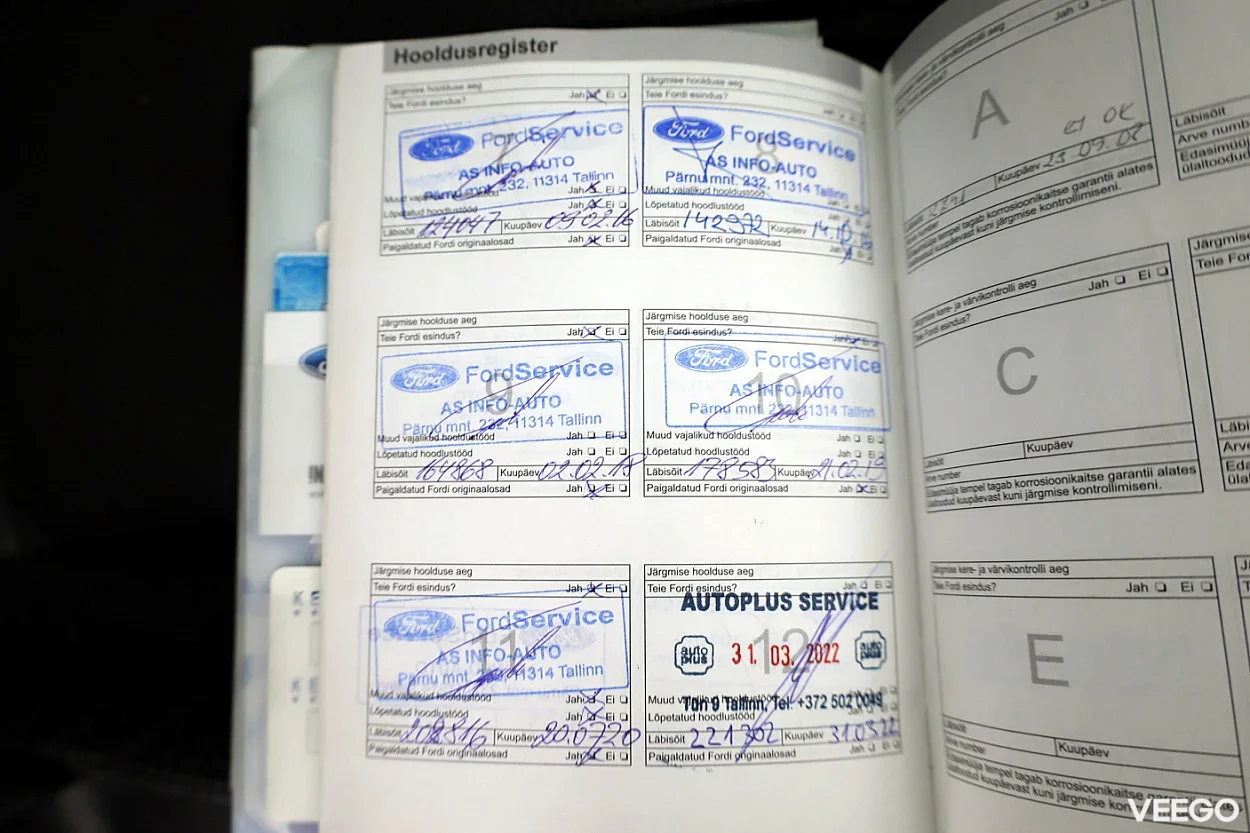 Hooldusregister
Järgmise hoolduse aeg
Teie Fordi esindus? Jah Ei
Ford FordService
AS INFO-AUTO
Pärnu mnt. 232, 11314 Tallinn
Muud vajalikud hooldustööd Jah Ei
Lõpetatud hoodlustööd Jah Ei
Läbisõit 124047 Kuupäev 09.02.16
Paigaldatud Fordi originaalosad Jah Ei
Järgmise hoolduse aeg
Teie Fordi esindus?
8
Ford FordService
AS INFO-AUTO
Pärnu mnt. 232, 11314 Tallinn
Muud vajalikud hooldustööd
Lõpetatud hoodlustööd
Läbisõit 142972 Kuupäev
Paigaldatud Fordi originaalosad
Järgmise hoolduse aeg
Teie Fordi esindus? Jah Ei
9
Ford FordService
AS INFO-AUTO
Pärnu mnt. 232, 11314 Tallinn
Muud vajalikud hooldustööd Jah Ei
Lõpetatud hoodlustööd Jah Ei
Läbisõit 164868 Kuupäev 02.02.18
Paigaldatud Fordi originaalosad Jah Ei
Järgmise hoolduse aeg
Teie Fordi esindus?
10
Ford FordService
AS INFO-AUTO
Pärnu mnt. 232, 11314 Tallinn
Muud vajalikud hooldustööd Jah Ei
Lõpetatud hoodlustööd Jah Ei
Läbisõit 178583 Kuupäev 21.02.19
Paigaldatud Fordi originaalosad Jah Ei
Järgmise hoolduse aeg
Teie Fordi esindus? Jah Ei
11
Ford FordService
AS INFO-AUTO
Pärnu mnt. 232, 11314 Tallinn
Muud vajalikud hooldustööd Jah Ei
Lõpetatud hoodlustööd Jah Ei
Läbisõit 202816 Kuupäev 20.07.20
Paigaldatud Fordi originaalosad Jah Ei
Järgmise hoolduse aeg
Teie Fordi esindus? Jah Ei
AUTOPLUS SERVICE
12
auto plus 31. 03. 2022 auto plus
Muud vajalikud hooldustööd
Türi 9 Tallinn, Tel. +372 502 0049
Lõpetatud hoodlustööd
Läbisõit 221302 Kuupäev 31.03.22
Paigaldatud Fordi originaalosad Jah Ei
Jah Ei
A
ei OK
Kuupäev 23.09.08
Arve number
Edasimüüja tempel tagab korrosioonikaitse garantii alates
ülaltoodud kuupäevast kuni järgmise kontrollimiseni.
Järgmise kere- ja värvikontrolli aeg
Teie Fordi esindus? Jah Ei
C
Läbisõit Kuupäev
Arve number
Edasimüüja tempel tagab korrosioonikaitse garantii alates
ülaltoodud kuupäevast kuni järgmise kontrollimiseni.
Järgmise kere- ja värvikontrolli aeg
Teie Fordi esindus? Jah Ei
E
Läbisõit Kuupäev
Arve number
Edasimüüja tempel tagab korrosioonikaitse garantii
ülaltoodud kuupäevast kuni järgmise
Läbisõit
Arve num
Edasimüü
ülaltoodud
Järgmise
Teie For
Läbi
Arve
Edas
ülalt
VEEGO